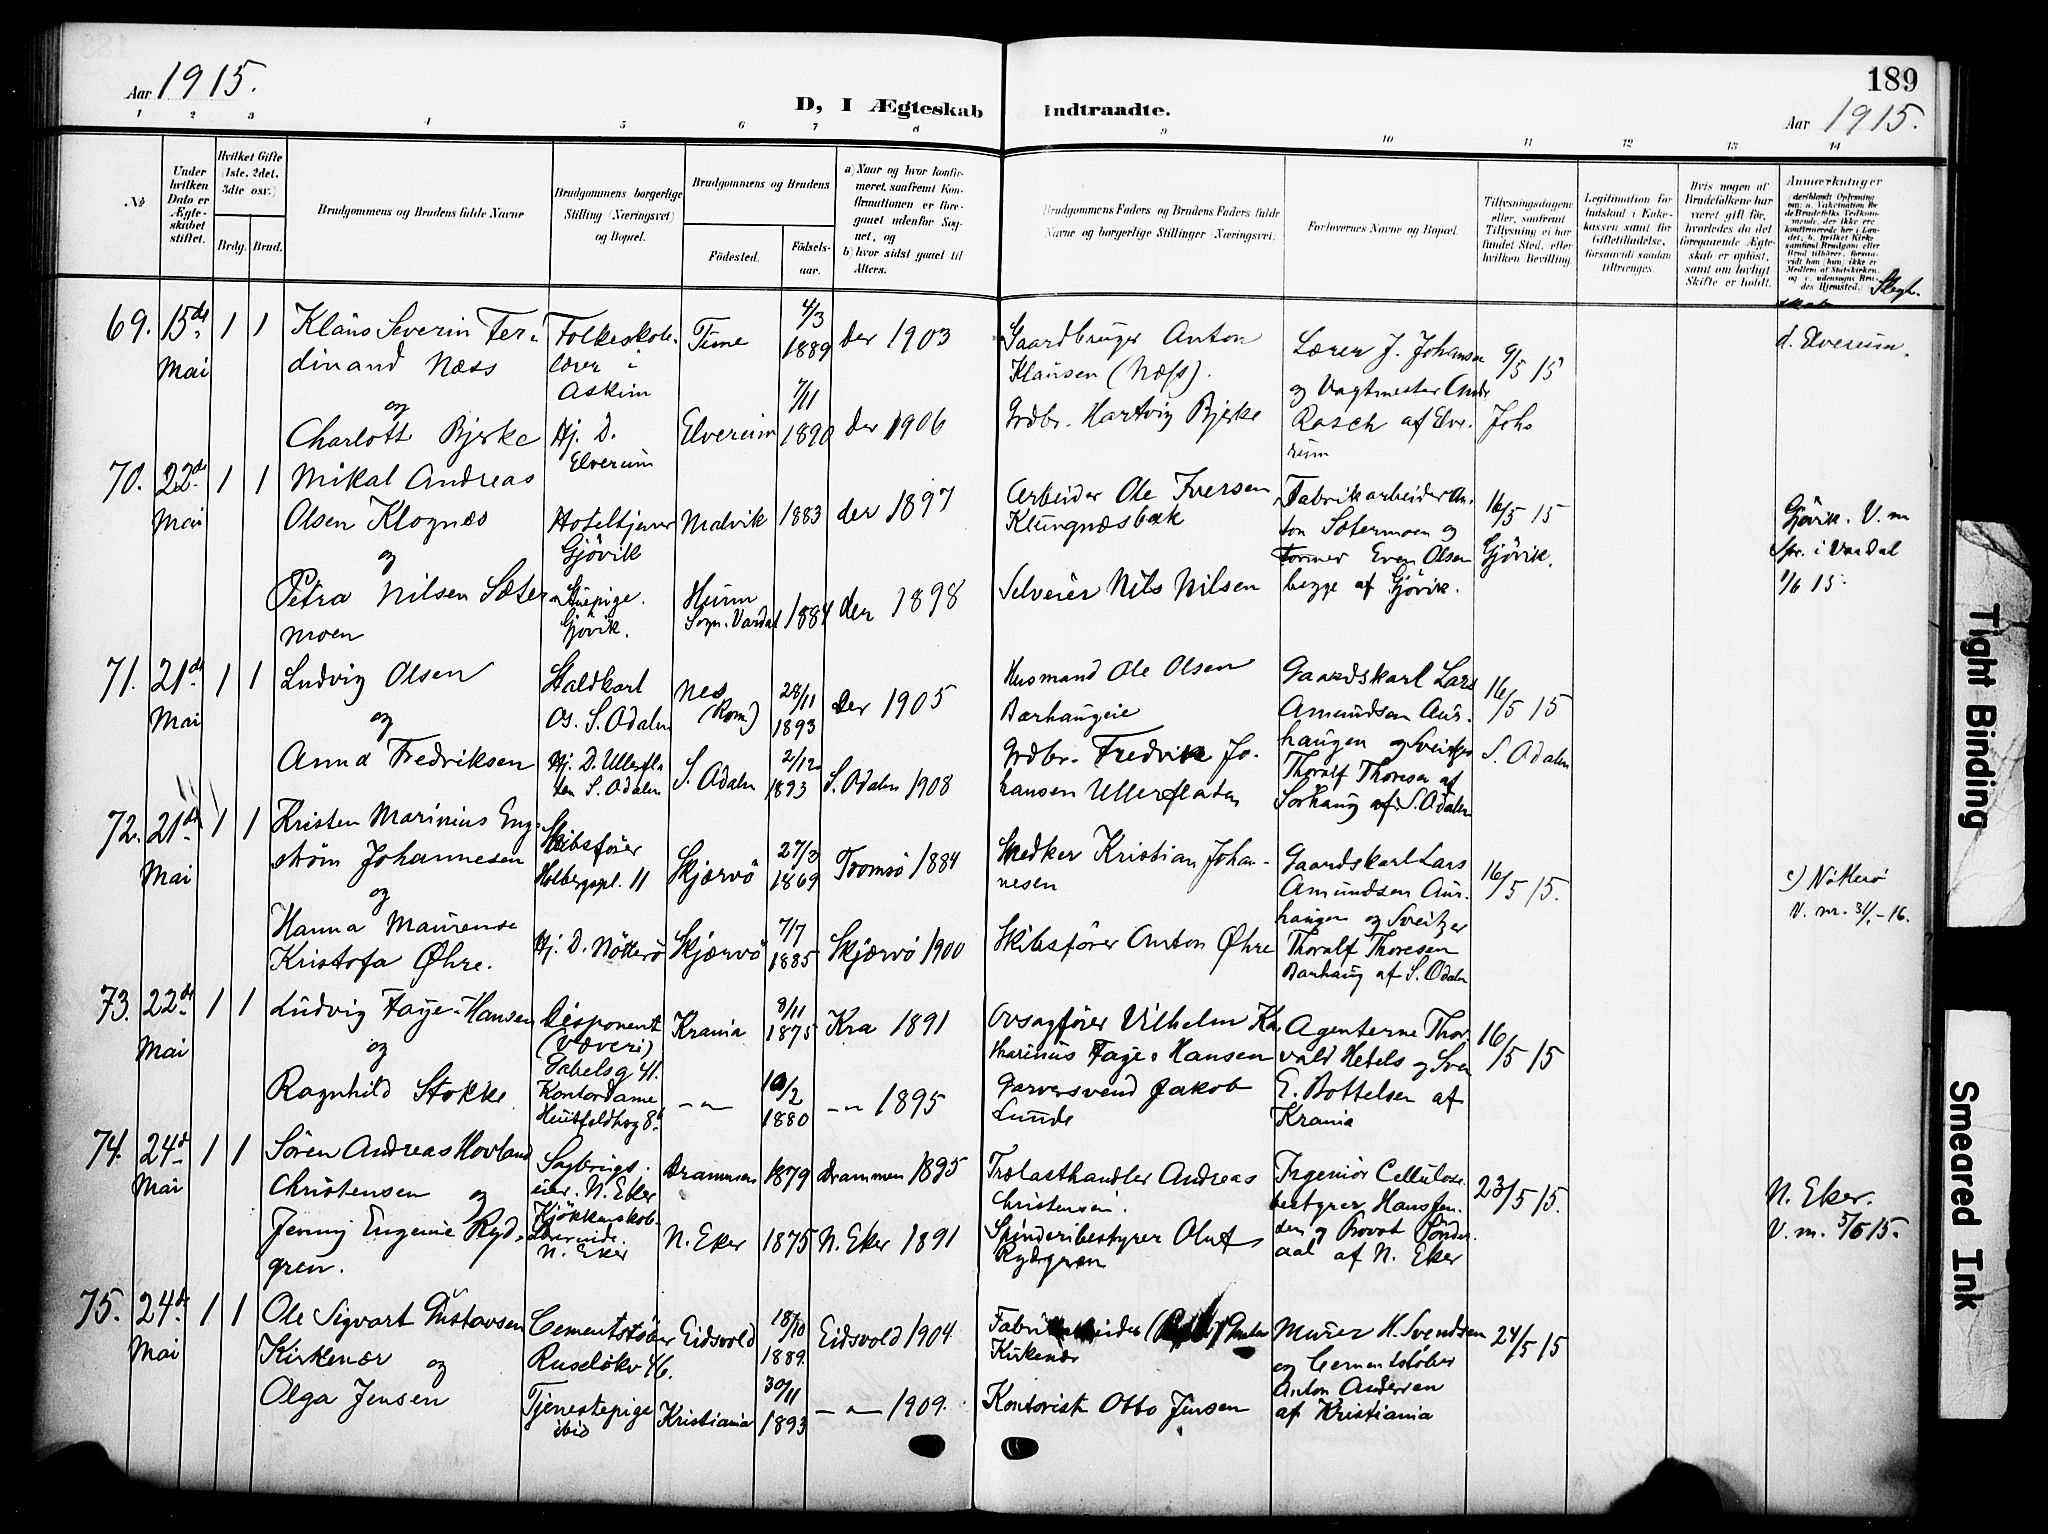 189
Aar 1915.
D, I Ægteskab Indtraadte.
Aar 1915.
1 2 3 4 5 6 7 8 9 10 11 12 13 14
No
Under hvilken Dato er Ægteskabet stiftet.
Hvilket Gifte (1ste, 2det, 3die osv.)
Brdg. Brud.
Brudgommens og Brudens fulde Navne
Brudgommens borgerlige Stilling (Næringsvei) og Bopæl.
Brudgommens og Brudens
Fødested.
Fødsels-aar.
a) Naar og hvor konfirmeret, saafremt Konfirmationen er foregaaet udenfor Sognet, og
b) hvor sidst gaaet til Alters.
Brudgommens Faders og Brudens Faders fulde Navne og borgerlige Stillinger (Næringsvei).
Forlovernes Navne og Bopæl.
Tillysningsdagene eller, saafremt Tillysning ei har fundet Sted, efter hvilken Bevilling
Legitimation for Indskud i Enkekassen samt for Giftetilladelse, forsaavidt saadan tiltrænges.
Hvis nogen af Brudefolkene har været gift før, hvorledes da det foregaaende Ægteskab er opløst, samt om lovligt Skifte er holdt.
Anmærkninger
69. 15de Mai 1 1
Klaus Severin Ferdinand Næss
Folkeskolelærer i Askim
Time 4/3 1889 der 1903
Gaardbruger Anton Klausen (Næss).
Lærer J. Johansen og Vagtmester
Rasch af Elverum
9/5 15
d. Elverum.
og
Charlott Bjerke
Hj. D. Elverum
Elverum 7/11 1890 der 1906
Grdbr. Hartvig Bjerke
70. 22de Mai 1 1
Mikal Andreas Olsen Klognæs
Hoteltjener Gjövik
Malvik 1883 der 1897
Arbeider Ole Iversen Klungnæsbak
Fabrikarbeider Anton Sætermoen og
Former Even Olsen
begge af Gjövik.
16/5 15
Gjövik.
Gjövik. V. m
Spr. i Vardal
1/6 15.
og
Petra Nilsen Sætermoen
Stuepige. Gjövik.
Hunn Sogn. Vardal 1884 der 1898
Selveier Nils Nilsen
71. 21de Mai 1 1
Ludvig Olsen
Staldkarl Os. S. Odalen
Nes (Rom.) 28/11 1893 der 1905
Husmand Ole Olsen Barhaugeie
Gaardskarl Lars Amundsen Aurhaugen og Sveitzer
Thoralf Thoresen af
Sorhaug af S. Odalen
16/5 15
S. Odalen
og
Anna Fredriksen
Hj. D. Ullerflaten S. Odalen
S. Odalen 2/12 1893 S. Odalen 1908
Grdbr. Fredrik Johansen Ullerflaten
72. 21de Mai 1 1
Kristen Marinius Engström Johannesen
Skibsfører Holbergspl. 11
Skjærvö 27/3 1869 Tromsö 1884
Bødker Kristian Johannesen
Gaardskarl Lars Amundsen Aurhaugen og Sveitzer
Thoralf Thoresen
Barhaug af S. Odalen
16/5 15.
c) Nötterö
V. m. 31/1-16.
og
Hanna Maurense Kristofa Øhre.
Hj. D. Nötterö
Skjærvö 7/7 1885 Skjærvö 1900
Skibsfører Anton Øhre
73. 22de Mai 1 1
Ludvig Faye-Hansen
Disponent (Væveri) Gabelsg 41.
Krania 8/11 1875 Kra 1891
Ovsagfører Vilhelm Katharinus Faye-Hansen
Agenterne Thorvald Hetels og Sven
E. Bottelsen af
Krania
16/5 15
og
Ragnhild Stokke
Kontordame Huitfeldtsg 8b
— „ — 10/2 1880 — „ — 1895
Garversvend Jakob Lunde
74. 24de Mai 1 1
Sören Andreas Hovland Christensen
Sagbrugseier. N. Eker
Drammen 1879 Drammen 1895
Trælasthandler Andreas Christensen.
Ingeniör Cellulosebestyrer Hans
og Provst Sönderaal af N. Eker
23/5 15.
N. Eker.
V. m. 5/6 15.
og
Jenny Eugenie Rydgren.
N. Eker
N. Eker 1875 N. Eker 1891
Spinderibestyrer Oluf Rydgren
75. 24de Mai 1 1
Ole Sigvart Gustavsen Kirkenær
Cementstöber Ruselökv 46.
Eidsvold 18/10 1889. Eidsvold 1904
Fabrikarbeider
Kirkenær
Murer H. Svendsen og Cementstöber
Anton Andersen
af Kristiania
24/5 15
og
Olga Jensen
Tjenestepige ibid
Kristiania 30/11 1893 — „ — 1909.
Kontorist Otto Jensen
Tight Binding
Smeared Ink